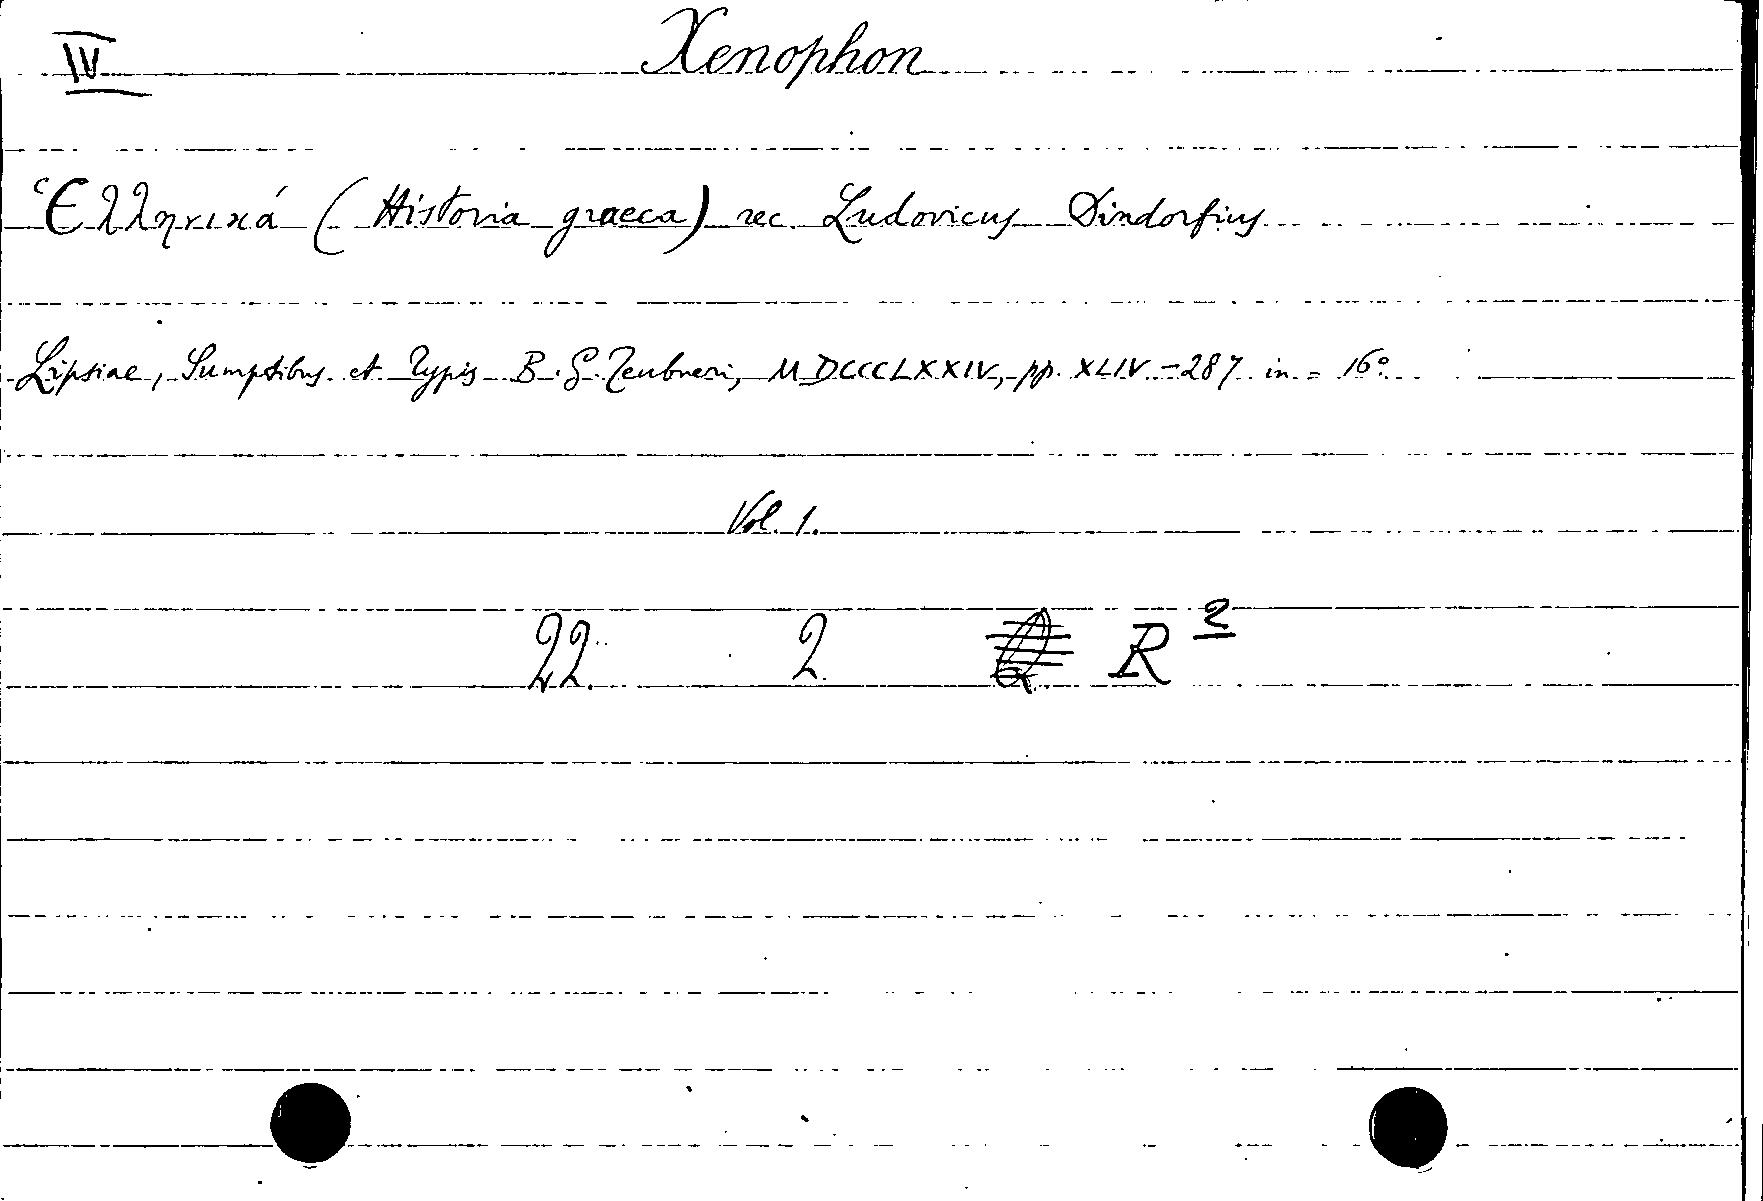 IV Xenophon
Ἑλληνικά (Historia graeca) rec. Ludovicus Dindorfius
Lipsiae, Sumptibus et Typis B. G. Teubneri, MDCCCLXXIV, pp. XLIV - 287 in = 16°
Vol. 1.
22. 2 R 2